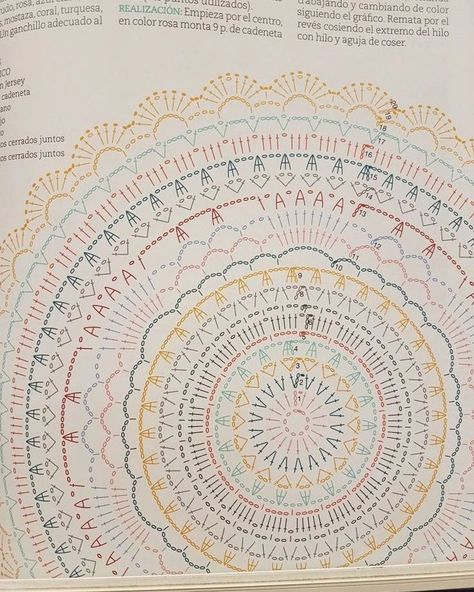 rosa,
, mostaza, coral, turquesa,
Un ganchillo adecuado al
puntos utilizados).
REALIZACIÓN: Empieza por el centro,
en color rosa monta 9 p. de cadeneta
trabajando y cambiando de color
siguiendo el gráfico. Remata por el
revés cosiendo el extremo del hilo
con hilo y aguja de coser.
ICO
n Jersey
cadeneta
ano
jo
o
os cerrados juntos
os cerrados juntos
20
19
18
17
16
15
14
13
12
11
10
9
8
4
3
2
1